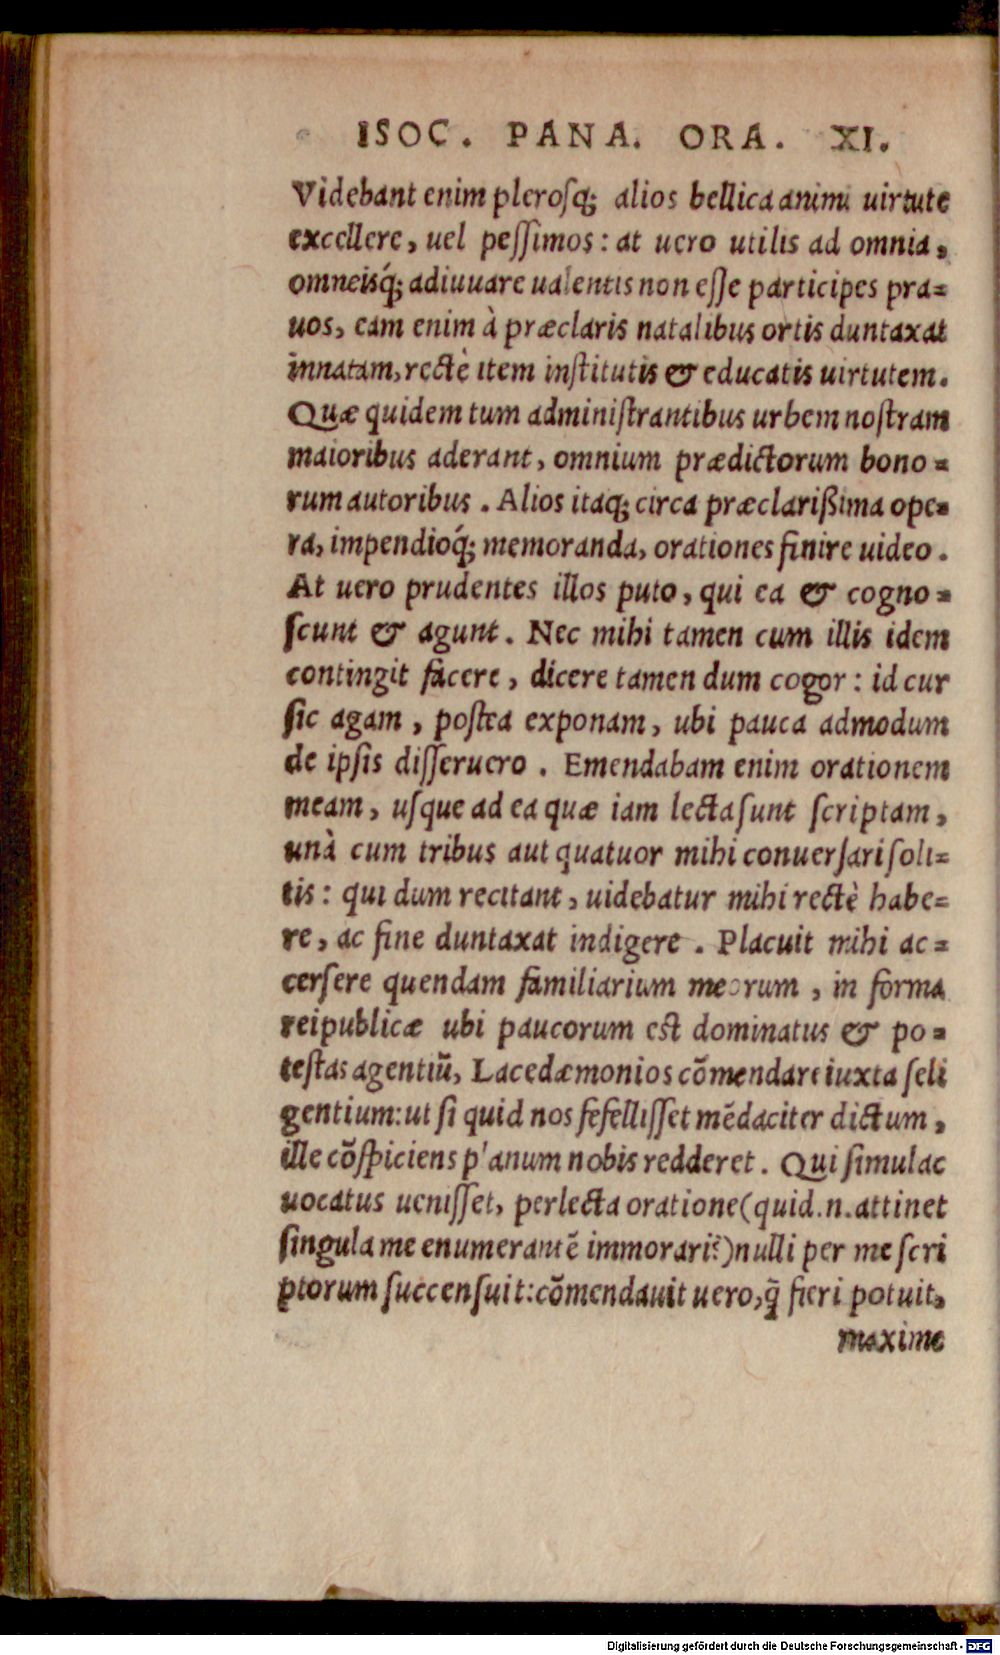 ISOC. PANA. ORA. XI.
Videbant enim plerosq; alios bellica animi uirtute
excellere, uel peſſimos: at uero utilis ad omnia,
omneisq́; adiuuare ualentis non eſſe participes pra=
uos, eam enim à præclaris natalibus ortis duntaxat
innatam, rectè item inſtitutis & educatis uirtutem.
Quæ quidem tum adminiſtrantibus urbem noſtram
maioribus aderant, omnium prædictorum bono=
rum autoribus. Alios itaq; circa præclarißima ope=
ra, impendioq́; memoranda, orationes finire uideo.
At uero prudentes illos puto, qui ea & cogno=
ſcunt & agunt. Nec mihi tamen cum illis idem
contingit facere, dicere tamen dum cogor: id cur
ſic agam, poſtea exponam, ubi pauca admodum
de ipſis diſſeruero. Emendabam enim orationem
meam, uſque ad ea quæ iam lecta ſunt ſcriptam,
unà cum tribus aut quatuor mihi conuerſari ſoli=
tis: qui dum recitant, uidebatur mihi rectè habe=
re, ac fine duntaxat indigere. Placuit mihi ac=
cerſere quendam familiarium meorum, in forma
reipublicæ ubi paucorum eſt dominatus & po=
teſtas agentiũ, Lacedæmonios cõmendare iuxta ſeli
gentium: ut ſi quid nos fefelliſſet mẽdaciter dictum,
ille cõſpiciens p'anum nobis redderet. Qui ſimulac
uocatus ueniſſet, perlecta oratione (quid.n.attinet
ſingula me enumerantẽ immorari?) nulli per me ſcri
ptorum ſuccenſuit: cõmendauit uero, q̃ fieri potuit,
maxime
Digitalisierung gefördert durch die Deutsche Forschungsgemeinschaft - DFG